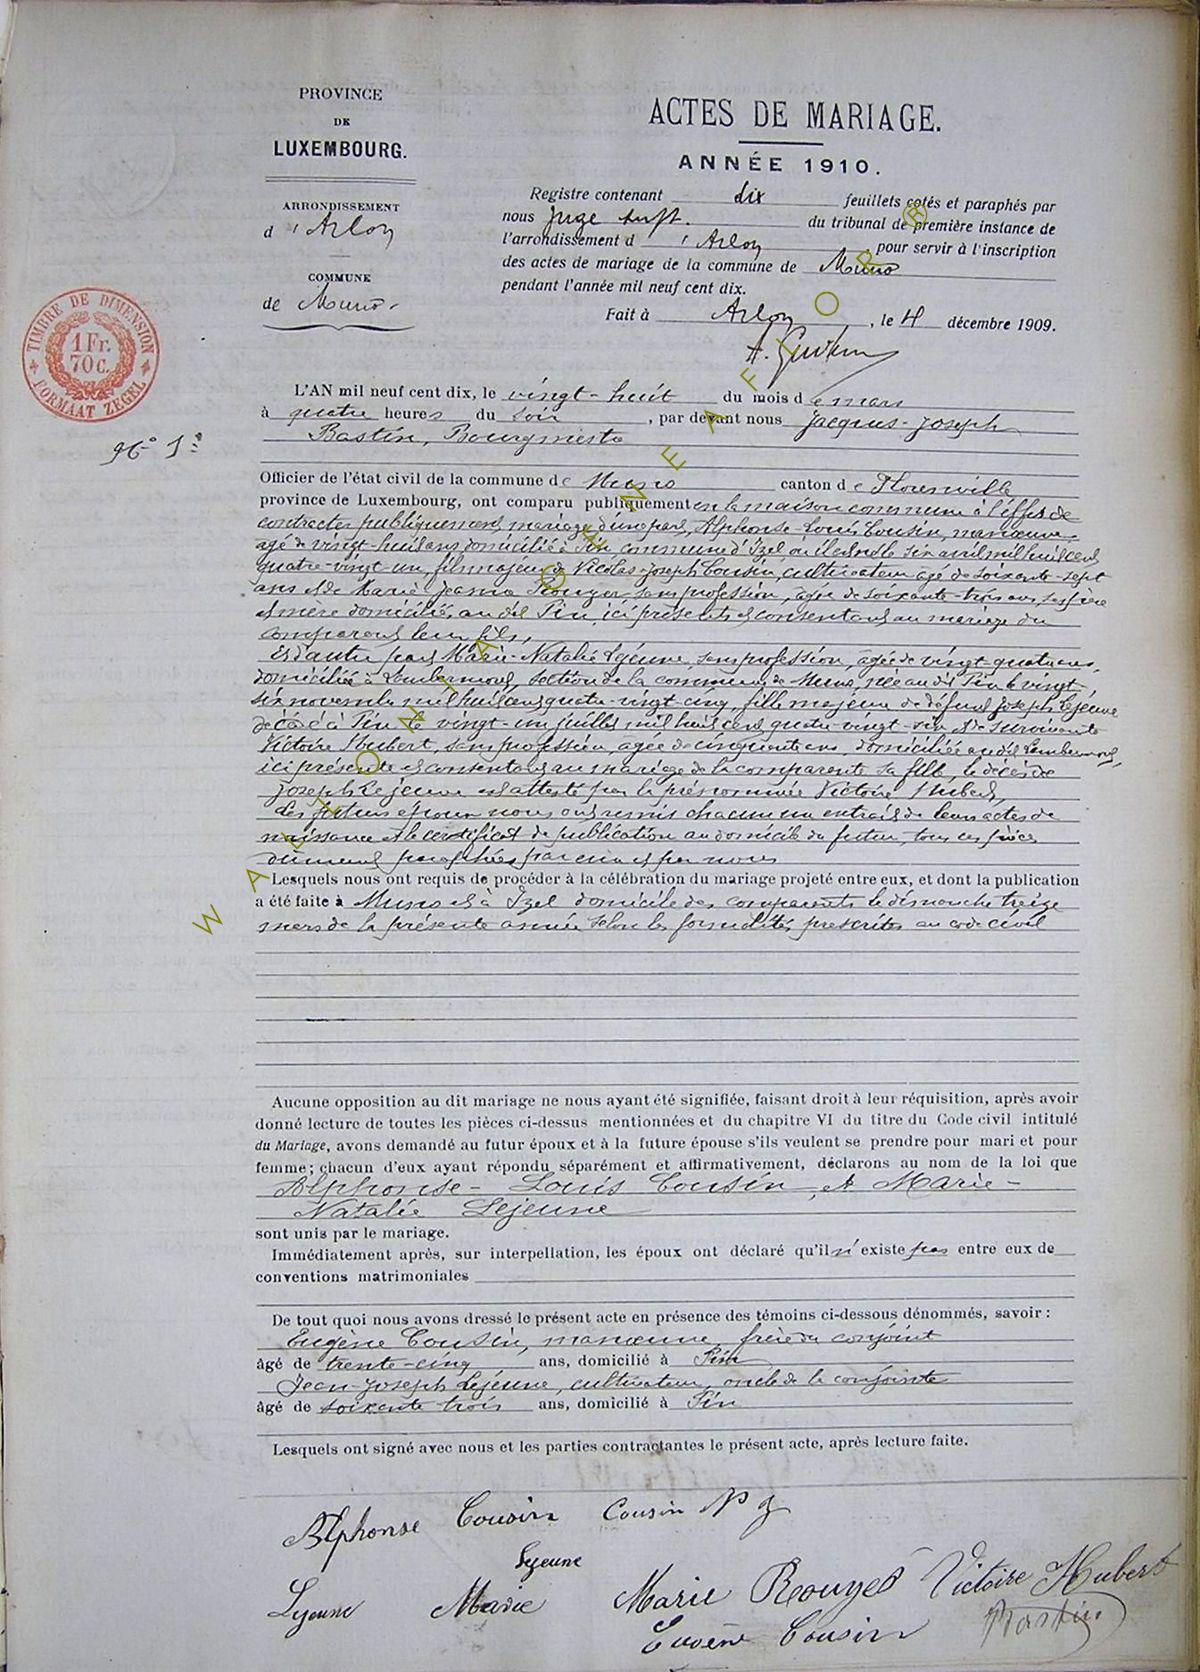 PROVINCE
DE
LUXEMBOURG.
ARRONDISSEMENT
d'Arlon
COMMUNE
de Muno
ACTES DE MARIAGE.
ANNÉE 1910.
Registre contenant dix feuillets cotés et paraphés par
nous Juge du tribunal de première instance de
l'arrondissement d'Arlon, pour servir à l'inscription
des actes de mariage de la commune de Muno
pendant l'année mil neuf cent dix.
Fait à Arlon, le 4 décembre 1909.
TIMBRE DE DIMENSION
1 Fr.
70 c.
FORMAAT ZEGEL
L'AN mil neuf cent dix, le vingt-huit du mois de mars
à quatre heures du soir, par devant nous Jacques-Joseph
Bastin, Bourgmestre
Officier de l'état civil de la commune de Muno canton de Florenville
province de Luxembourg, ont comparu publiquement en la maison commune à l'effet de
contracter publiquement mariage d'une part, Alphonse-Louis Cousin, manœuvre
agé de vingt-huit ans domicilié à Pin commune d'Izel où il est né le six avril mil huit cent
quatre-vingt-un, fils majeur de Nicolas-Joseph Cousin, cultivateur agé de soixante-sept
ans et de Marie-Jeanne Rouyer sans profession, agée de soixante-trois ans, ses père
et mère domiciliés au dit Pin, ici présents et consentant au mariage du
comparant leur fils,
Et d'autre part Marie-Natalie Lejeune sans profession, agée de vingt-quatre ans,
domiciliée à Lambermont, section de la commune de Muno, née au dit Pin le vingt
six novembre mil huit cent quatre-vingt-cinq, fille majeure de défunt Joseph Lejeune
décédé à Pin le vingt-un juillet mil huit cent quatre-vingt-six et de survivante
Victoire Hubert, sans profession, agée de cinquante ans, domiciliée au dit Lambermont,
ici présente et consentant au mariage de la comparante sa fille, le décès de
Joseph Lejeune est attesté par la prénommée Victoire Hubert,
Les futurs époux nous ont remis chacun un extrait de leurs actes de
naissance et le certificat de publication au domicile du futur, tous ces pièces
dûment paraphées par eux et par nous
Lesquels nous ont requis de procéder à la célébration du mariage projeté entre eux, et dont la publication
a été faite à Muno et à Izel domicile des comparants le dimanche treize
mars de la présente année selon les formalités prescrites au code civil
Aucune opposition au dit mariage ne nous ayant été signifiée, faisant droit à leur réquisition, après avoir
donné lecture de toutes les pièces ci-dessus mentionnées et du chapitre VI du titre du Code civil intitulé
du Mariage, avons demandé au futur époux et à la future épouse s'ils veulent se prendre pour mari et pour
femme; chacun d'eux ayant répondu séparément et affirmativement, déclarons au nom de la loi que
Alphonse-Louis Cousin, et Marie-
Natalie Lejeune
sont unis par le mariage.
Immédiatement après, sur interpellation, les époux ont déclaré qu'il n'existe pas entre eux de
conventions matrimoniales
De tout quoi nous avons dressé le présent acte en présence des témoins ci-dessous dénommés, savoir :
Eugène Cousin, manœuvre, frère du conjoint
âgé de trente-cinq ans, domicilié à Pin
Jean-Joseph Lejeune, cultivateur, oncle de la conjointe
âgé de soixante trois ans, domicilié à Pin
Lesquels ont signé avec nous et les parties contractantes le présent acte, après lecture faite.
Alphonse Cousin Cousin N J
Lejeune
Lejeune Marie Marie Rouyer Victoire Hubert
Eugène Cousin Bastin
WALLONIA GENEAFLOR ®